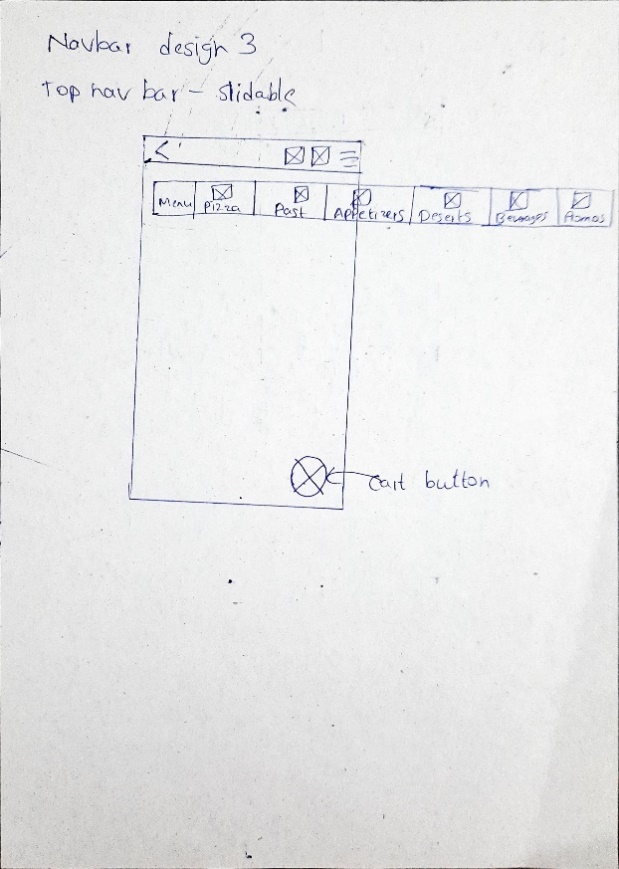 Navbar design 3
Top nav bar - slidable
Menu Pizza Past Appetizers Deserts
Cart button